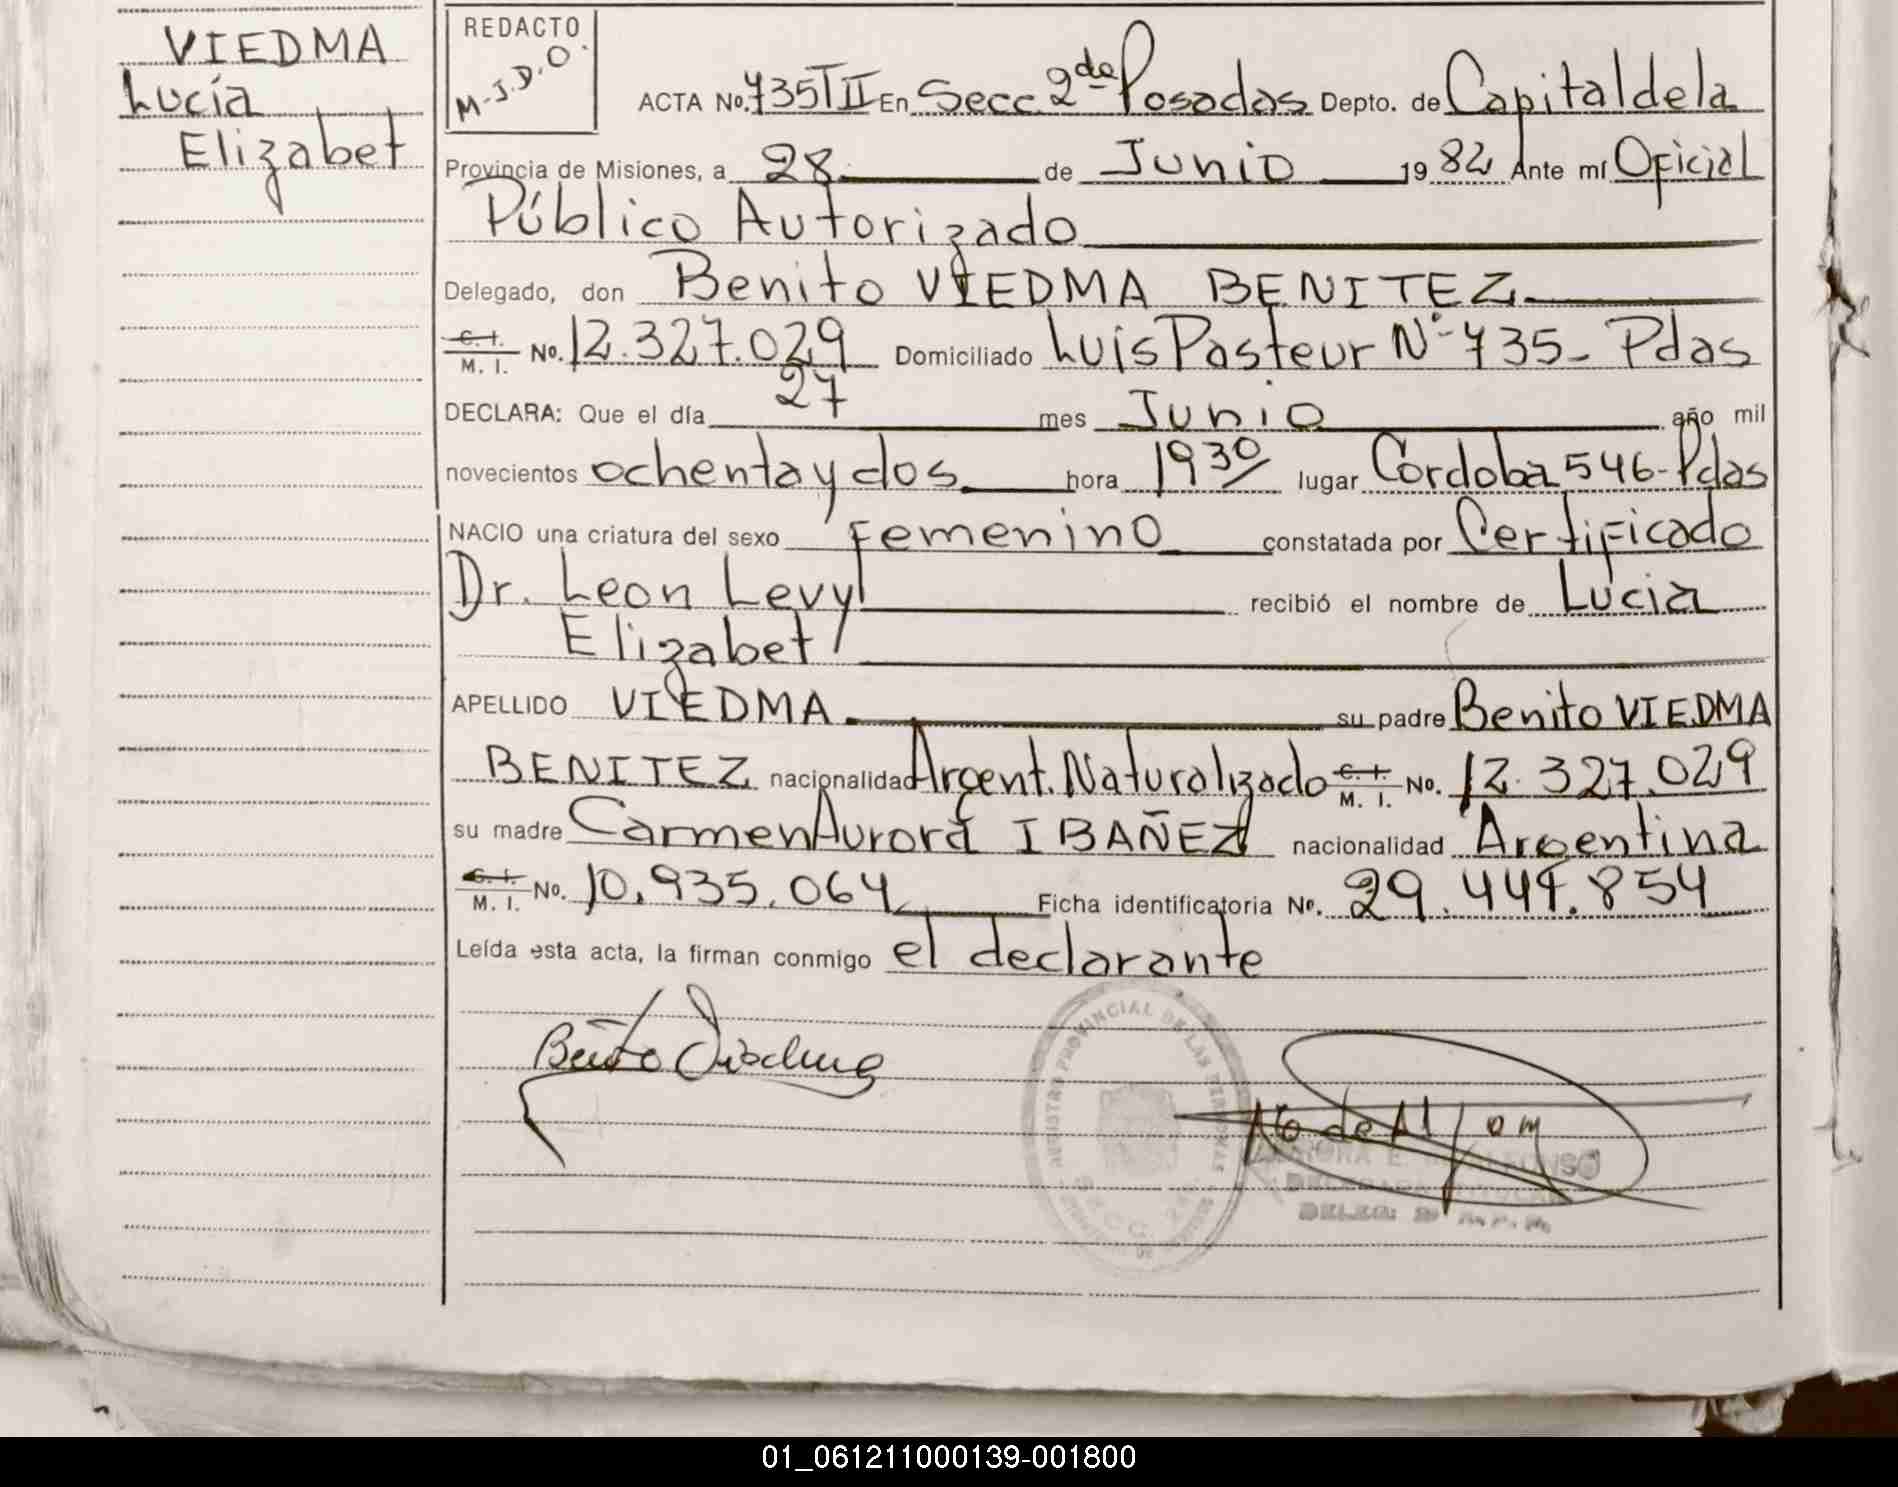 VIEDMA
Lucía
Elizabet
REDACTO
M.J.D.O.
ACTA No. 735 T II En Secc. 2da Posadas Depto. de Capital de la
Provincia de Misiones, a 28 de Junio 1982 Ante mí Oficial
Público Autorizado
Delegado, don Benito VIEDMA BENITEZ
C. I. M. I. No. 12.327.029 Domiciliado Luis Pasteur Nº 735 - Pdas
DECLARA: Que el día 27 mes Junio año mil
novecientos ochenta y dos hora 19 30 lugar Cordoba 546 - Pdas
NACIO una criatura del sexo Femenino constatada por Certificado
Dr. Leon Levy recibió el nombre de Lucia
Elizabet
APELLIDO VIEDMA su padre Benito VIEDMA
BENITEZ nacionalidad Argent. Naturalizado C. I. M. I. No. 12.327.029
su madre Carmen Aurora IBAÑEZ nacionalidad Argentina
C. I. M. I. No. 10.935.064 Ficha identificatoria No. 29.447.854
Leída esta acta, la firman conmigo el declarante
Benito Viedma
REGISTRO PROVINCIAL DE LAS PERSONAS
SECC. 2da
01_061211000139-001800